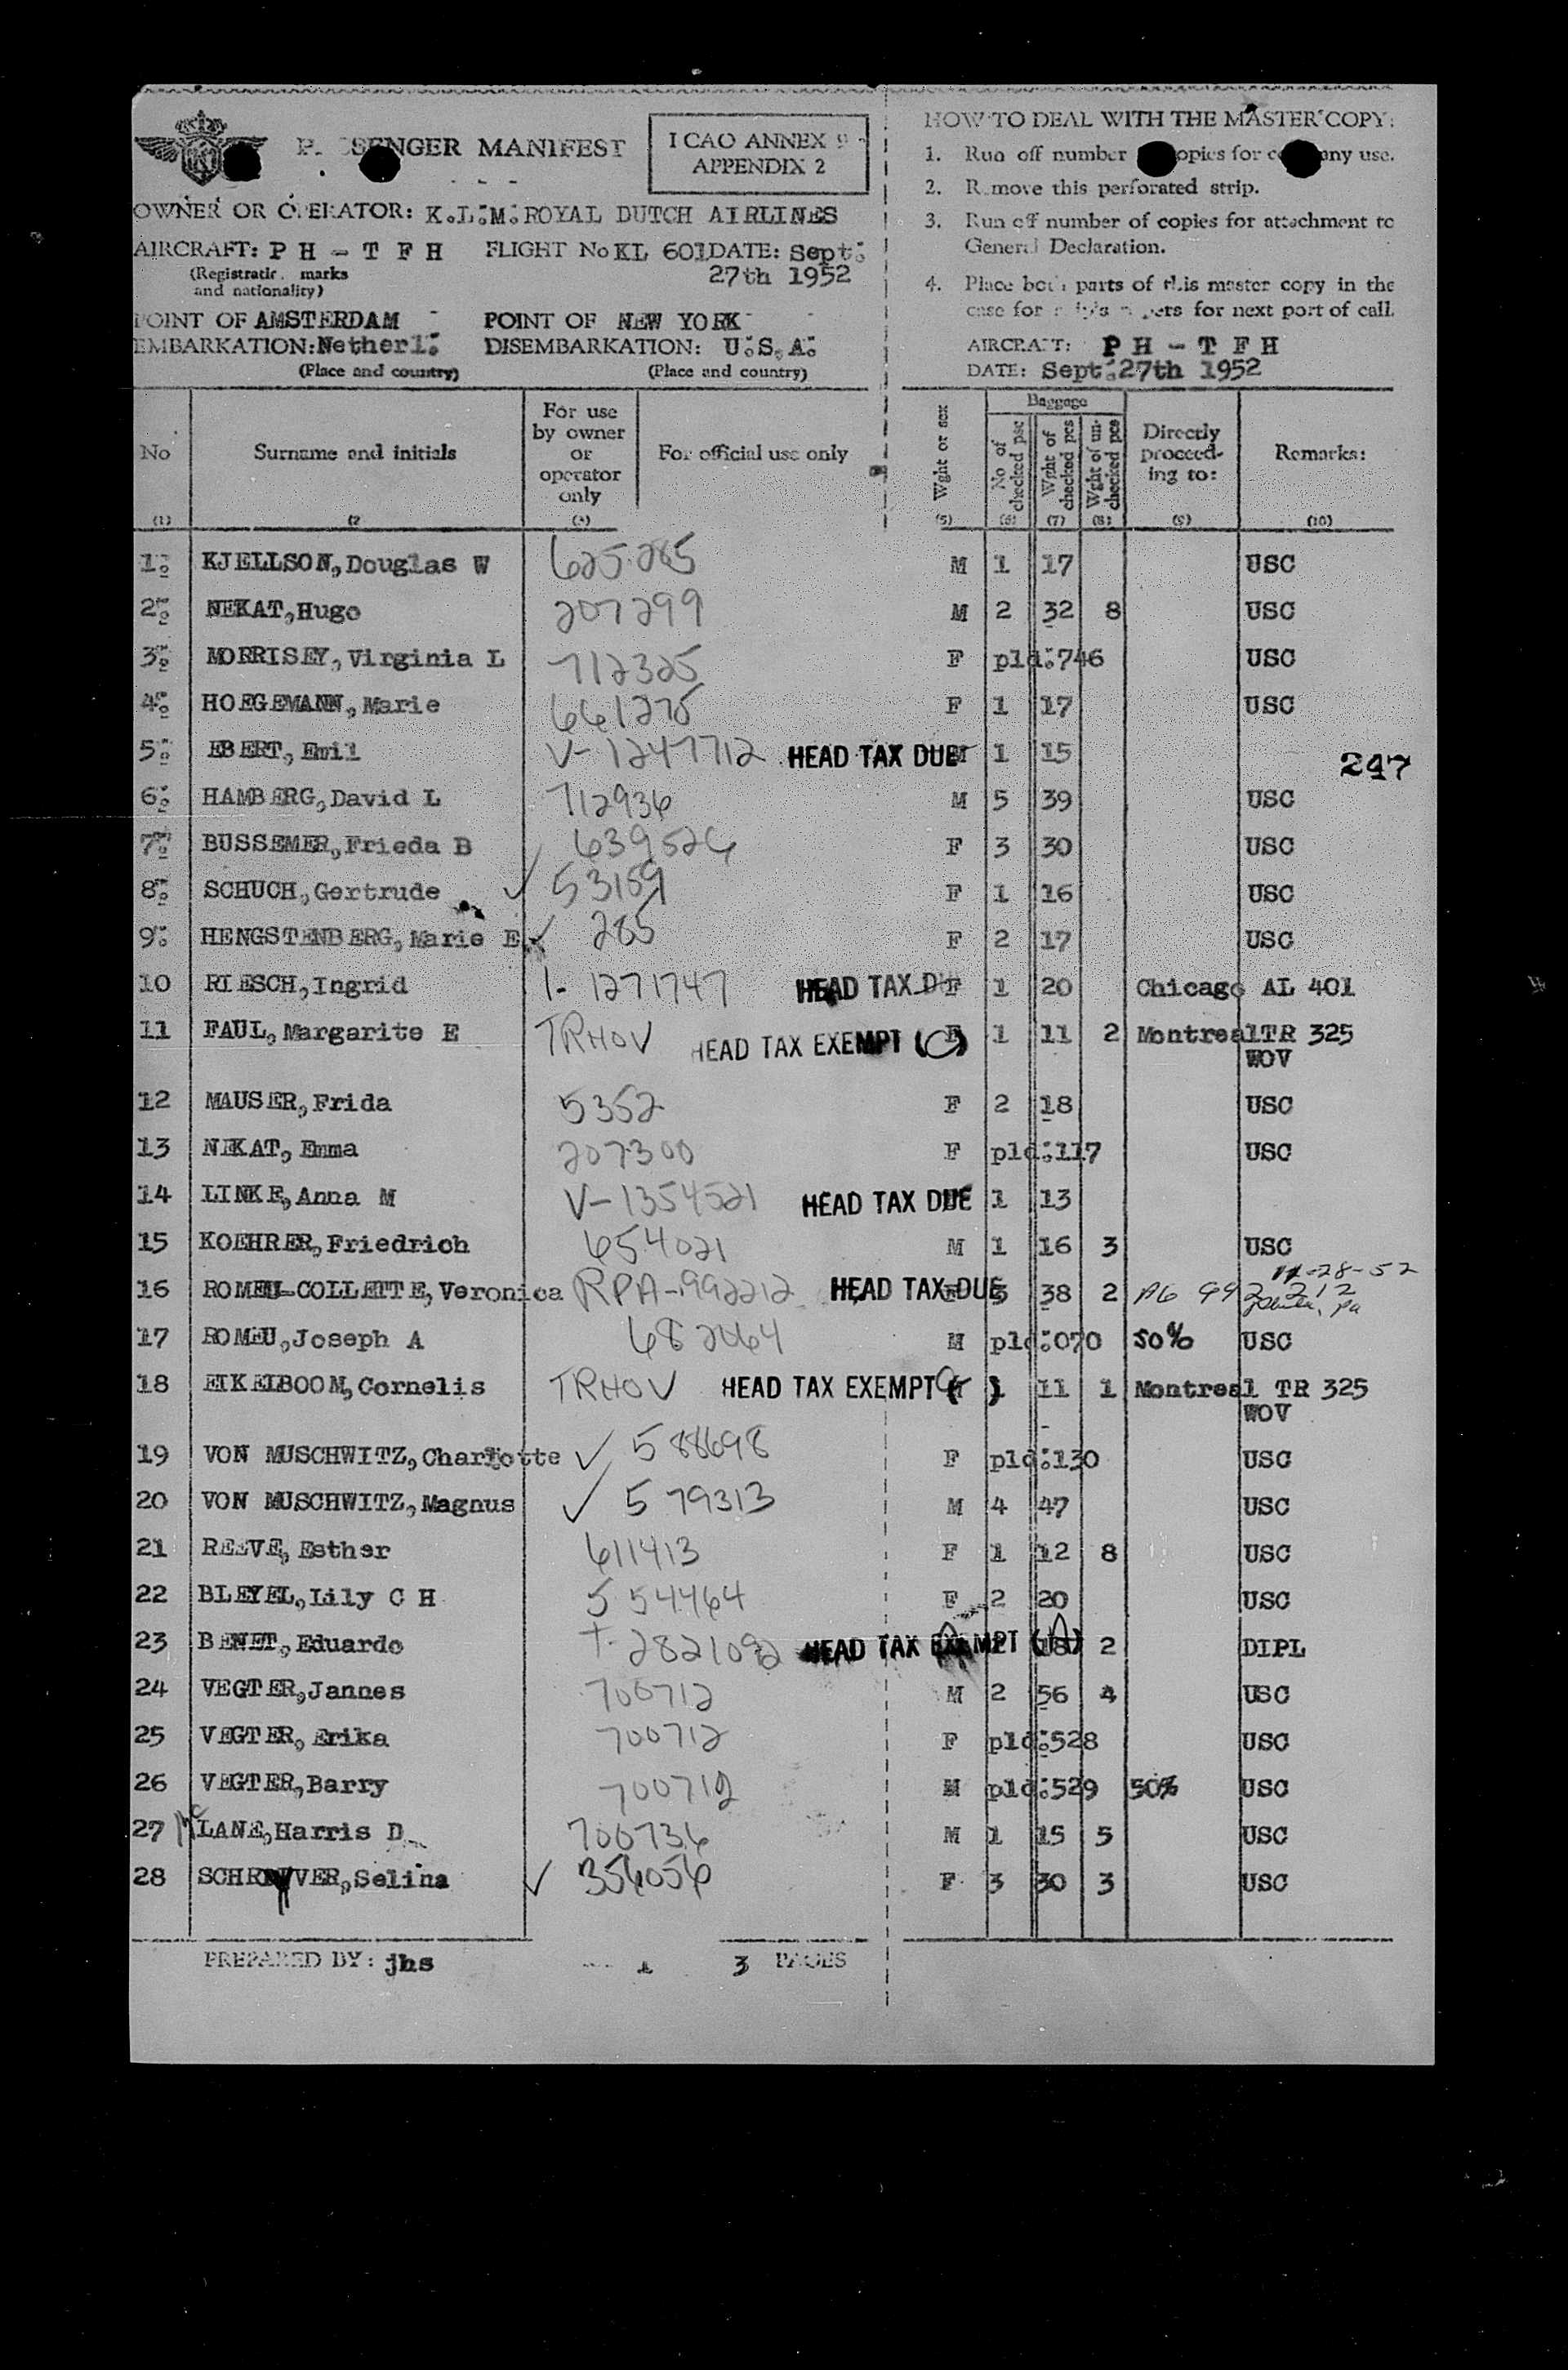 PASSENGER MANIFEST
ICAO ANNEX 9
APPENDIX 2
OWNER OR OPERATOR: K.L.M. ROYAL DUTCH AIRLINES
AIRCRAFT: PH - TFH FLIGHT No KL 601 DATE: Sept.
(Registration marks and nationality) 27th 1952
POINT OF AMSTERDAM POINT OF NEW YORK
EMBARKATION: Netherl. DISEMBARKATION: U.S.A.
(Place and country) (Place and country)
HOW TO DEAL WITH THE MASTER COPY:
1. Run off number of copies for company use.
2. Remove this perforated strip.
3. Run off number of copies for attachment to
General Declaration.
4. Place both parts of this master copy in the
case for next port of call.
AIRCRAFT: PH - TFH
DATE: Sept. 27th 1952
No Surname and initials For use by owner or operator only For official use only Wght or sex Baggage No of checked psc Wght of checked pcs Wght of un-checked pcs Directly proceed-ing to: Remarks:
(1) (2 (3) (5) (6) (7) (8) (9) (10)
1. KJELLSON, Douglas W 625285 M 1 17 USC
2. NEKAT, Hugo 207299 M 2 32 8 USC
3. MORRISEY, Virginia L 712325 F pld.746 USC
4. HOEGEMANN, Marie 661275 F 1 17 USC
5. EBERT, Emil V-1247712 HEAD TAX DUE M 1 15
247
6. HAMBERG, David L 712936 M 5 39 USC
7. BUSSEMER, Frieda B 639526 F 3 30 USC
8. SCHUCH, Gertrude ✓ 53159 F 1 16 USC
9. HENGSTENBERG, Marie E ✓ 285 F 2 17 USC
10 RIESCH, Ingrid 1-1271747 HEAD TAX DUE F 1 20 Chicago AL 401
11 FAUL, Margarite E TRHOV HEAD TAX EXEMPT (C) F 1 11 2 Montreal TR 325
WOV
12 MAUSER, Frida 5352 F 2 18 USC
13 NEKAT, Emma 207300 F pld.117 USC
14 LINKE, Anna M V-1354521 HEAD TAX DUE 1 13
15 KOEHRER, Friedrich 654021 M 1 16 3 USC
11-28-52
16 ROMEU-COLLETTE, Veronica RPA-992212 HEAD TAX DUE F 3 38 2 AG 992 212
Phila, Pa
17 ROMEU, Joseph A 682064 M pld.070 50% USC
18 EIKELBOOM, Cornelis TRHOV HEAD TAX EXEMPT (C) 1 11 1 Montreal TR 325
WOV
19 VON MUSCHWITZ, Charlotte ✓ 588698 F pld.130 USC
20 VON MUSCHWITZ, Magnus ✓ 579313 M 4 47 USC
21 REEVE, Esther 611413 F 1 12 8 USC
22 BLEYEL, Lily C H 554464 F 2 20 USC
23 BENET, Eduardo T-2821092 HEAD TAX EXEMPT (A) 18 2 DIPL
24 VEGTER, Jannes 700712 M 2 56 4 USC
25 VEGTER, Erika 700712 F pld.528 USC
26 VEGTER, Barry 700712 M pld.529 50% USC
27 Mc LANE, Harris D 700736 M 1 15 5 USC
28 SCHRYVER, Selina ✓ 356056 F 3 30 3 USC
PREPARED BY: jhs 1 3 PAGES